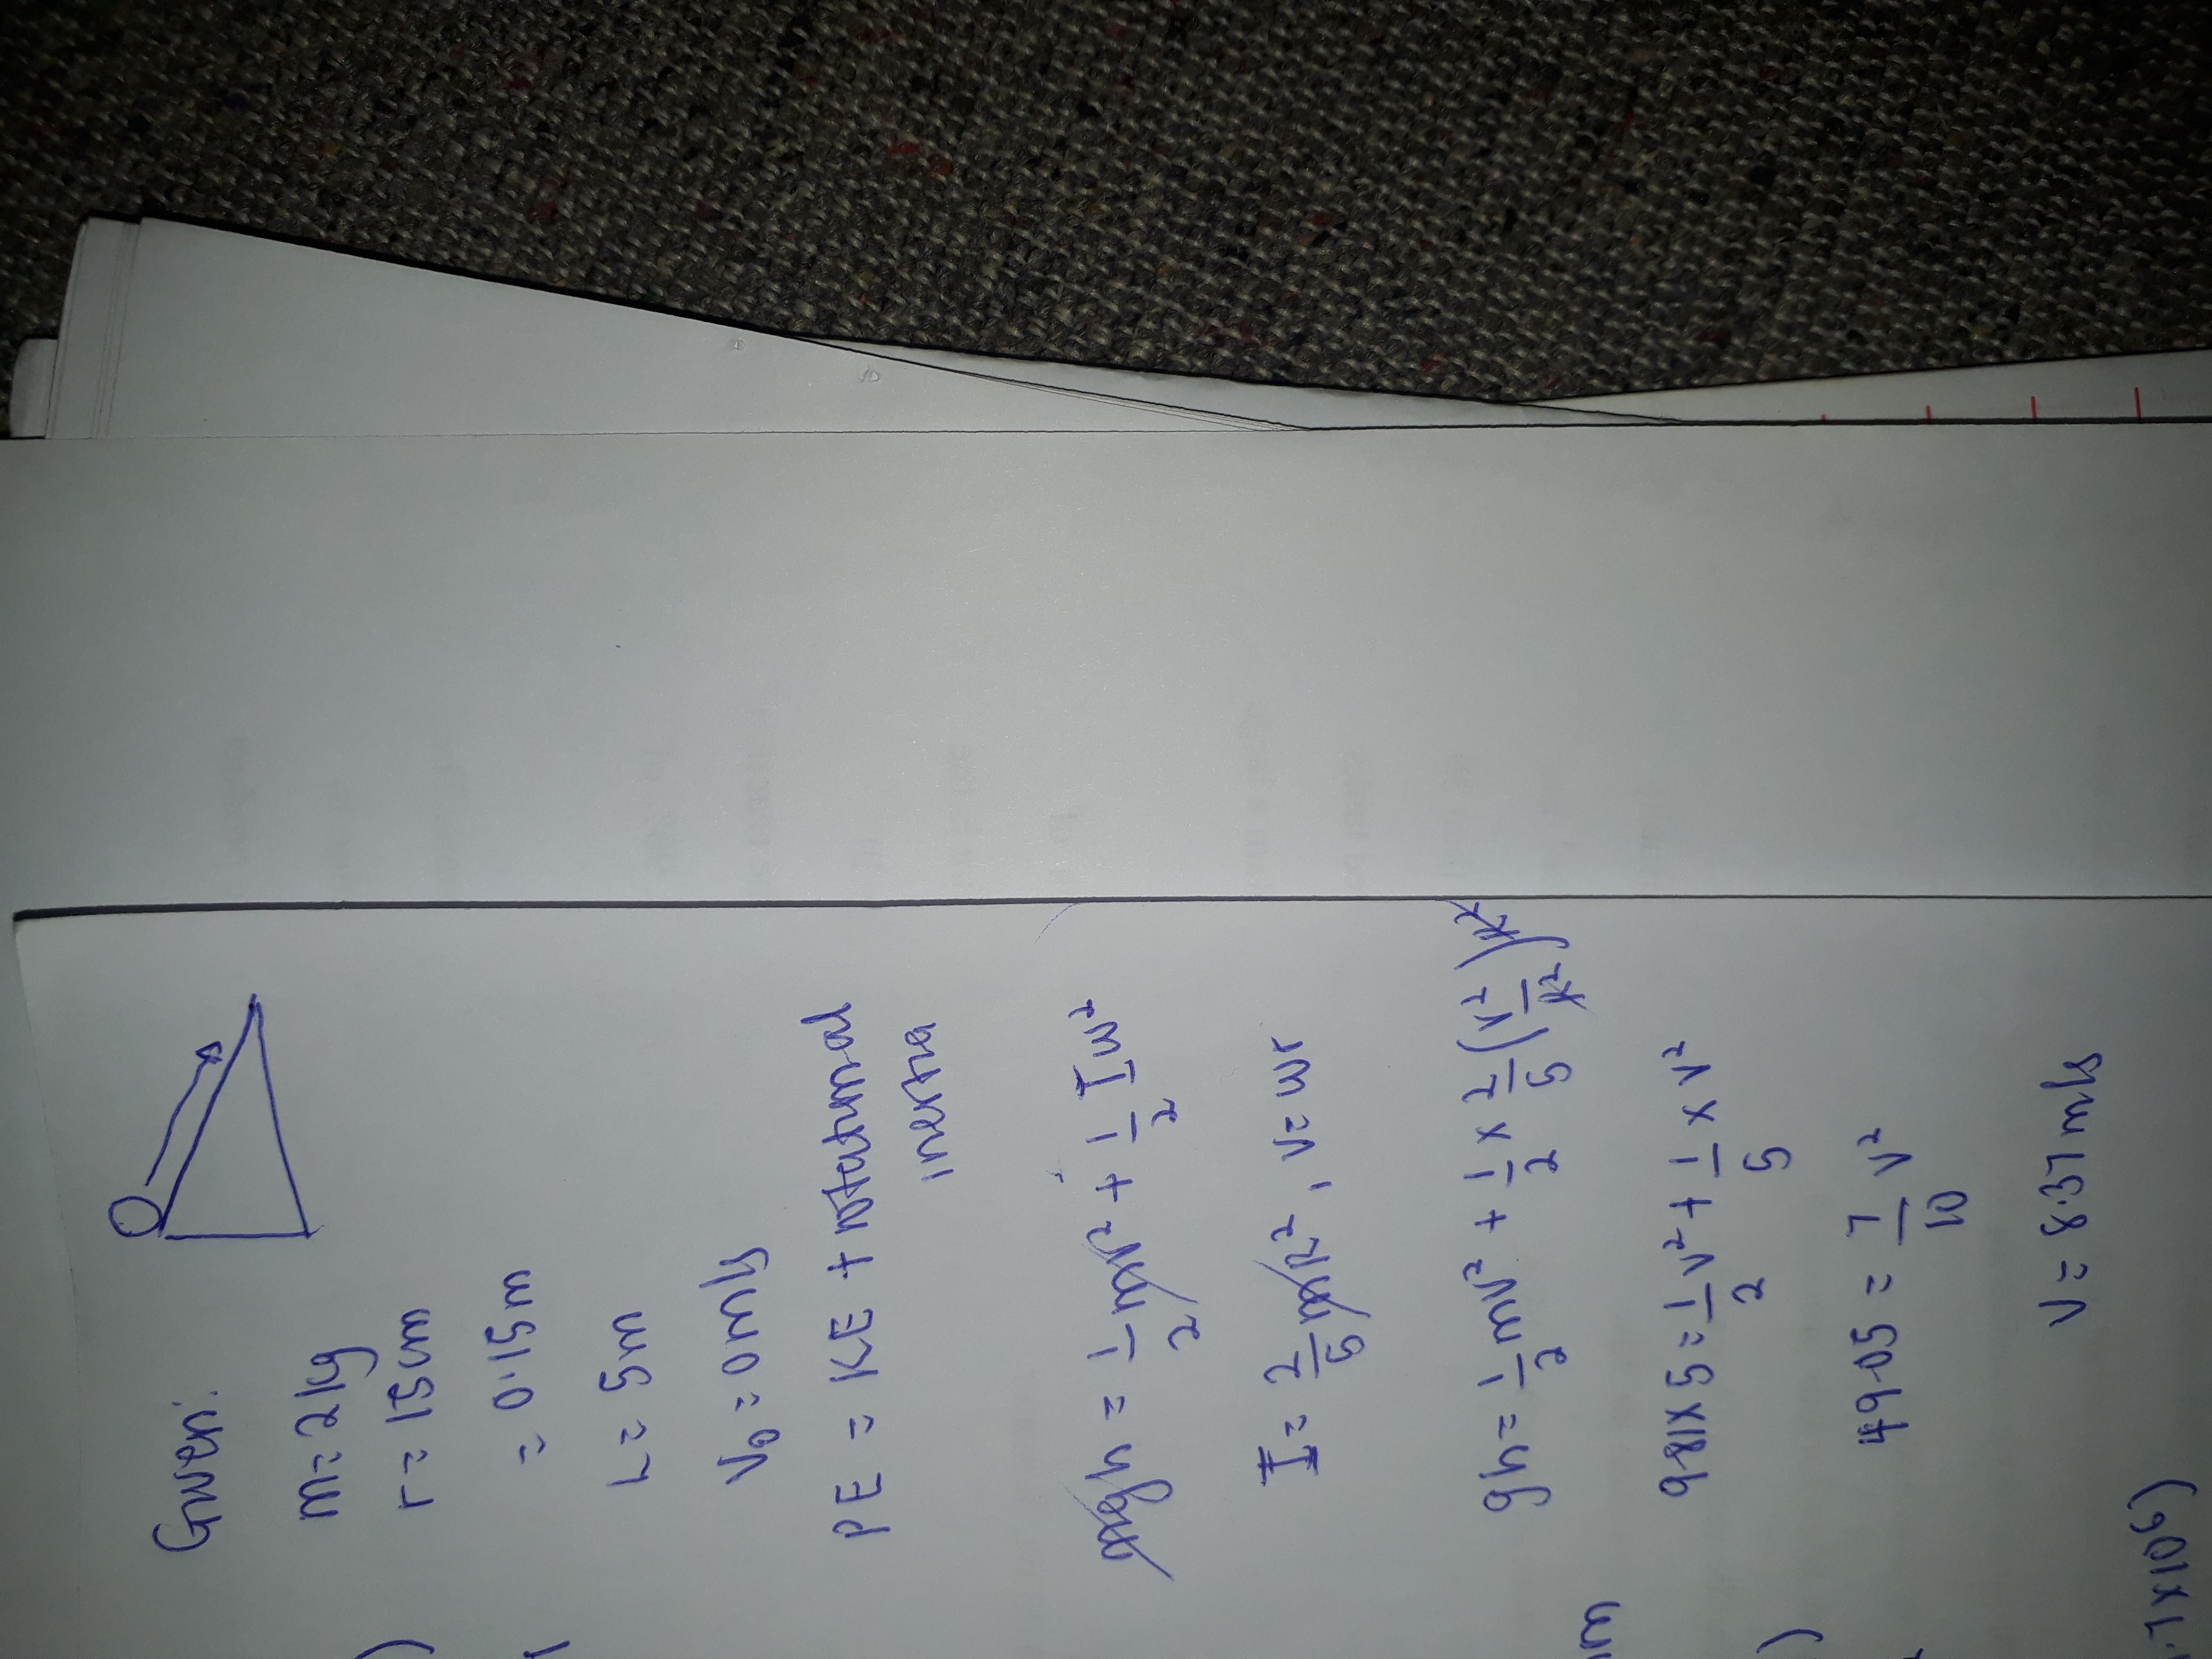 Given:
m = 2 kg
r = 15 cm
= 0.15 m
L = 5 m
V₀ = 0 m/s
PE = KE + rotational
inertia
mgh = 1/2 mv² + 1/2 Iω²
I = 2/5 mR², v = ωr
gh = 1/2 mv² + 1/2 x 2/5 (v²/R²) R²
9.81 x 5 = 1/2 v² + 1/5 x v²
49.05 = 7/10 v²
V = 8.37 m/s